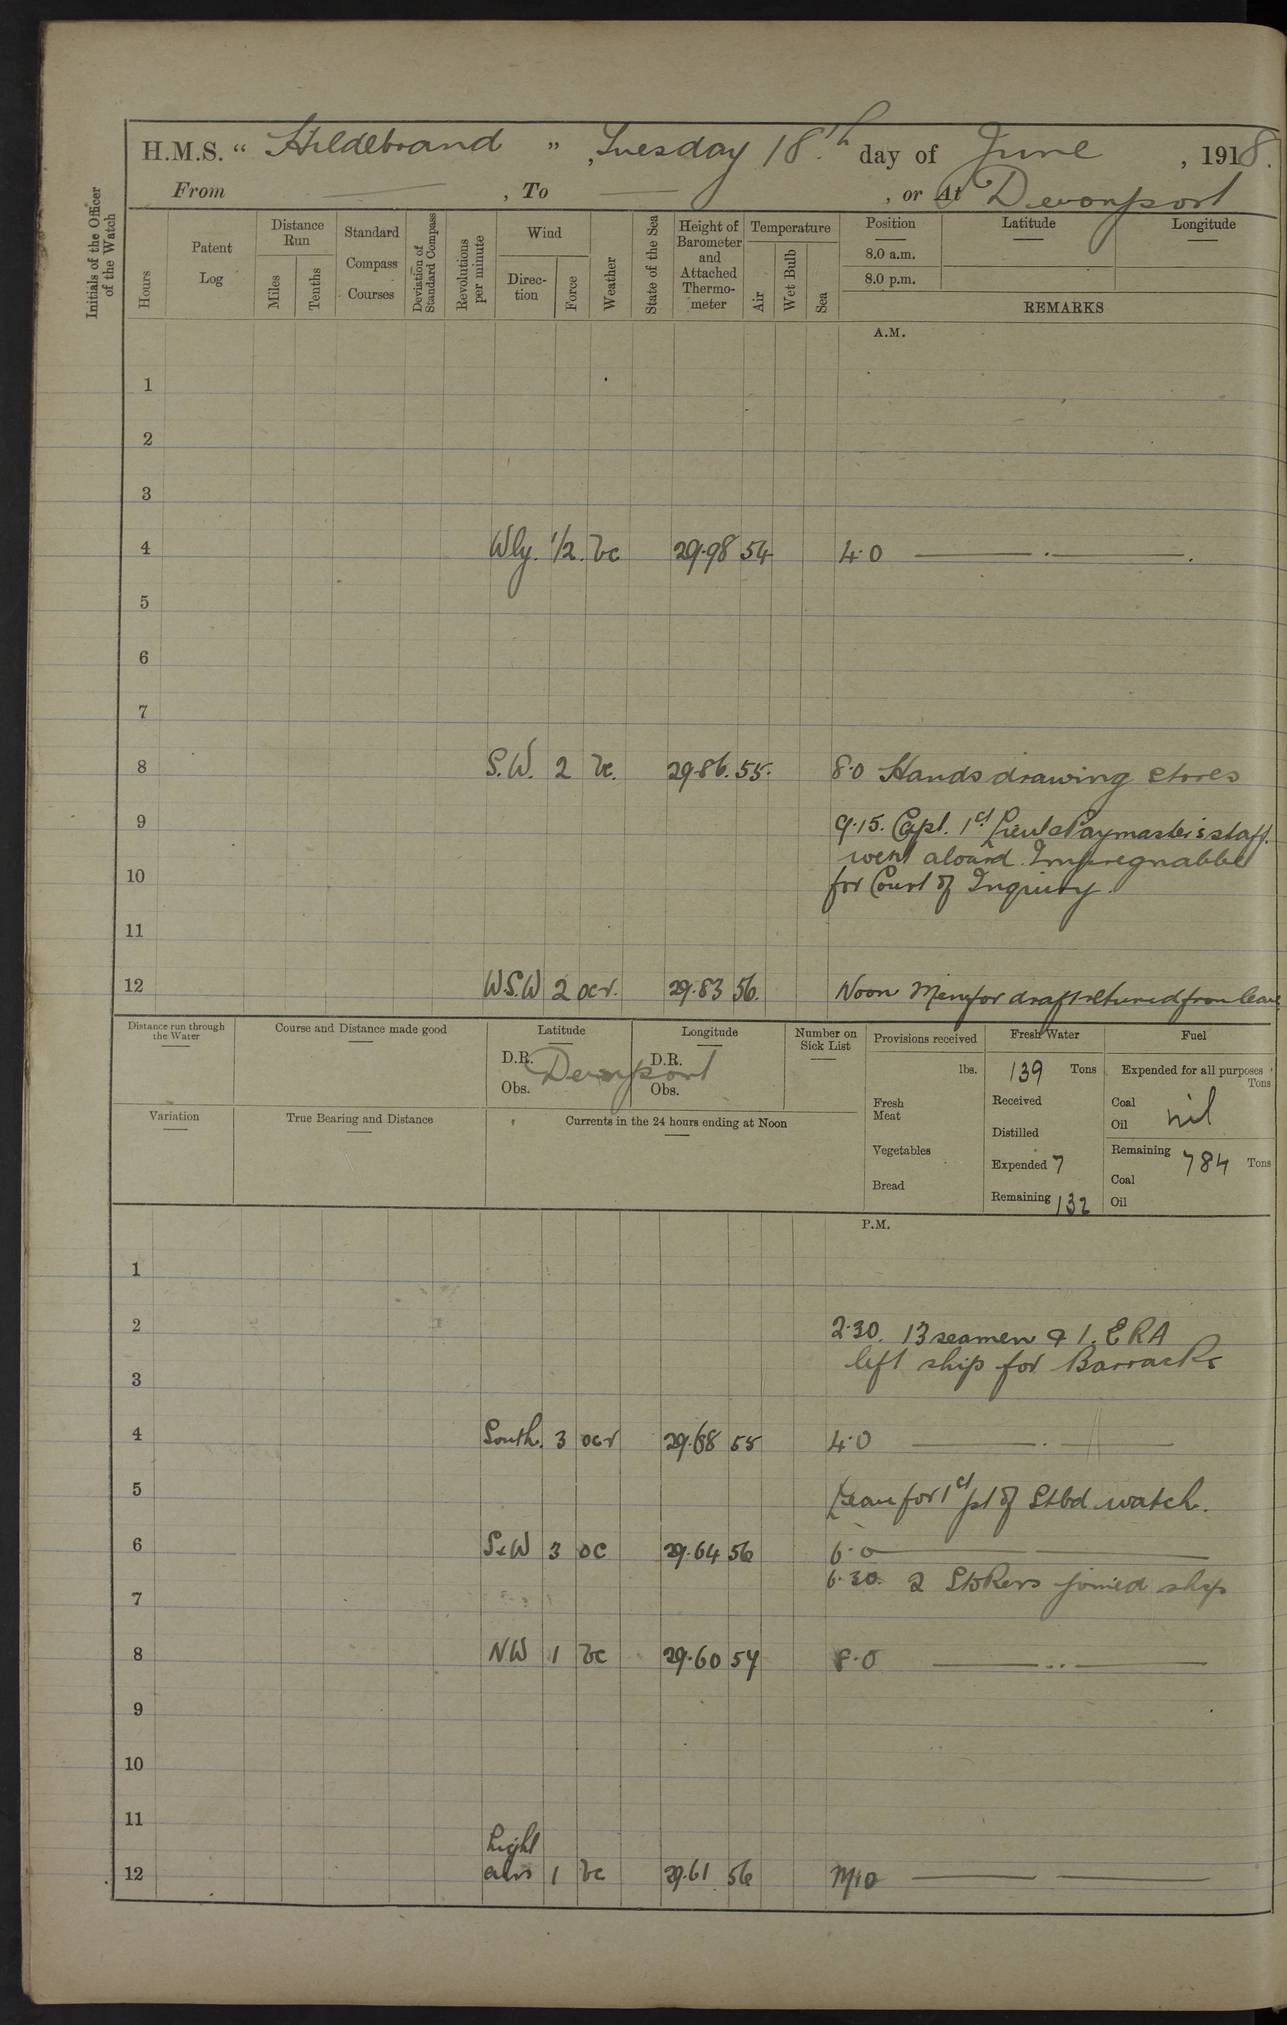 H.M.S. “ Hildebrand ” , Tuesday 18th day of June , 1918.
From , To , or At Devonport
Initials of the Officer of the Watch
Hours
Patent Log
Distance Run
Miles
Tenths
Standard Compass Courses
Deviation of Standard Compass
Revolutions per minute
Wind
Direction
Force
Weather
State of the Sea
Height of Barometer and Attached Thermometer
Temperature
Air
Wet Bulb
Sea
Position Latitude Longitude
8.0 a.m.
8.0 p.m.
REMARKS
A.M.
1
2
3
4 Wly. 1/2. bc 29.98 54 4.0
5
6
7
8 S.W. 2 bc. 29.86. 55. 8.0 Hands drawing stores
9 9.15. Capt. 1st Lieut & Paymaster's staff.
went aboard Impregnable
10 for Court of Inquiry.
11
12 W.S.W 2 ocr. 29.83 56. Noon Men for draft returned from leave
Distance run through the Water
Course and Distance made good
Latitude
D.R.
Obs.
Longitude
D.R.
Obs.
Devonport
Number on Sick List
Provisions received
lbs.
Fresh Meat
Vegetables
Bread
Fresh Water
139 Tons
Received
Distilled
Expended 7
Remaining 132
Fuel
Expended for all purposes
Tons
Coal
Oil nil
Remaining 784 Tons
Coal
Oil
Variation
True Bearing and Distance
Currents in the 24 hours ending at Noon
P.M.
1
2 2.30. 13 seamen & 1. ERA
left ship for Barracks
3
4 South. 3 ocr 29.68 55 4.0
5 Leave for 1st pt of Stbd watch.
6 SxW 3 oc 29.64 56 6.0
6.30. 2 Stokers joined ship
7
8 NW 1 bc 29.60 57 8.0
9
10
11
Light
12 airs 1 bc 29.61 56